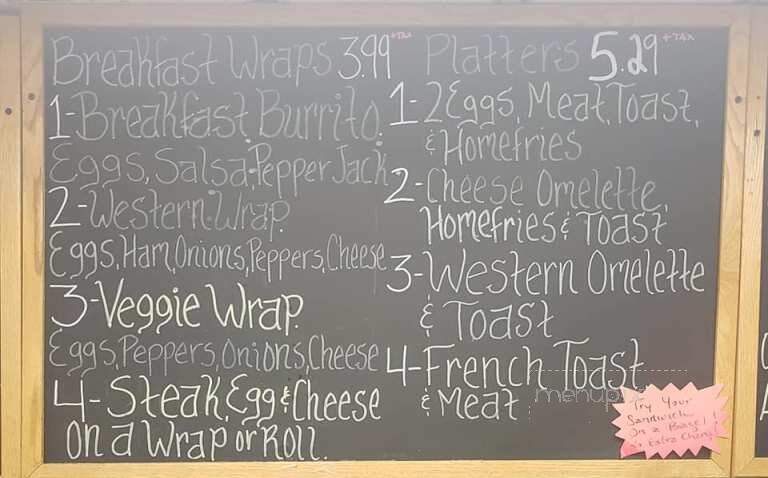 Breakfast Wraps 3.99 +TAX
1-Breakfast Burrito.
Eggs, Salsa, Pepper Jack
2-Western Wrap
Eggs, Ham, Onions, Peppers, Cheese
3-Veggie Wrap
Eggs, Peppers, Onions, Cheese
4-Steak, Egg & Cheese
on a Wrap or Roll.
Platters 5.29 +TAX
1-2 Eggs, Meat, Toast,
& Homefries
2-Cheese Omelette,
Homefries & Toast
3-Western Omelette
& Toast
4-French Toast
& Meat
menupix
Try Your
Sandwich
On a Bagel!
Extra Charge